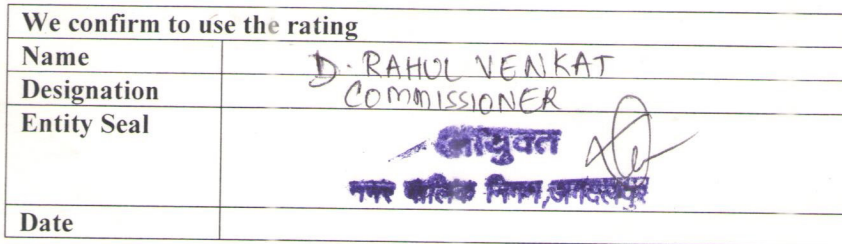 We confirm to use the rating
Name D. RAHUL VENKAT
Designation COMMISSIONER
Entity Seal आयुक्त
नगर पालिक निगम,जगदलपुर
Date